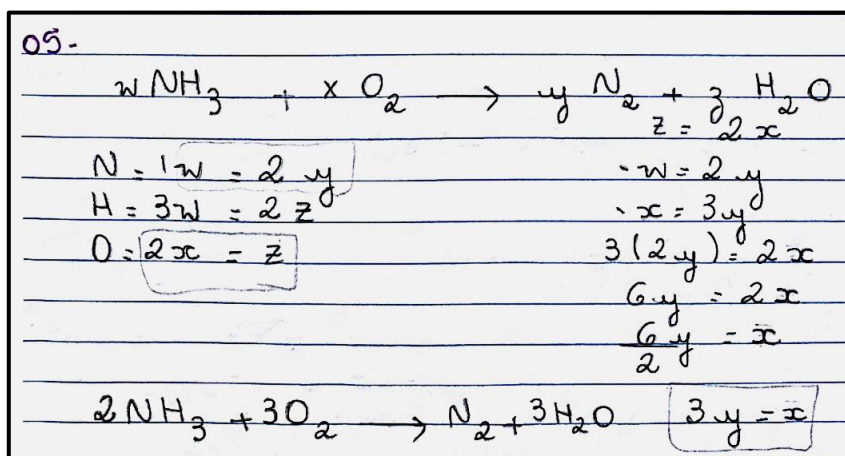 05-
w NH3 + x O2 → y N2 + z H2O
z = 2x
N = 1w = 2y
H = 3w = 2z
O = 2x = z
- w = 2y
- x = 3y
3(2y) = 2x
6y = 2x
6/2 y = x
2NH3 + 3O2 → N2 + 3H2O
3y = x